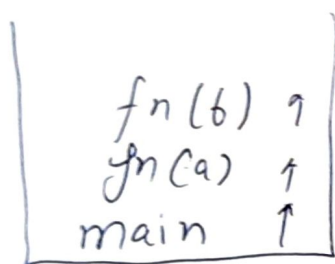 fn(b) ↑
fn(a) ↑
main ↑